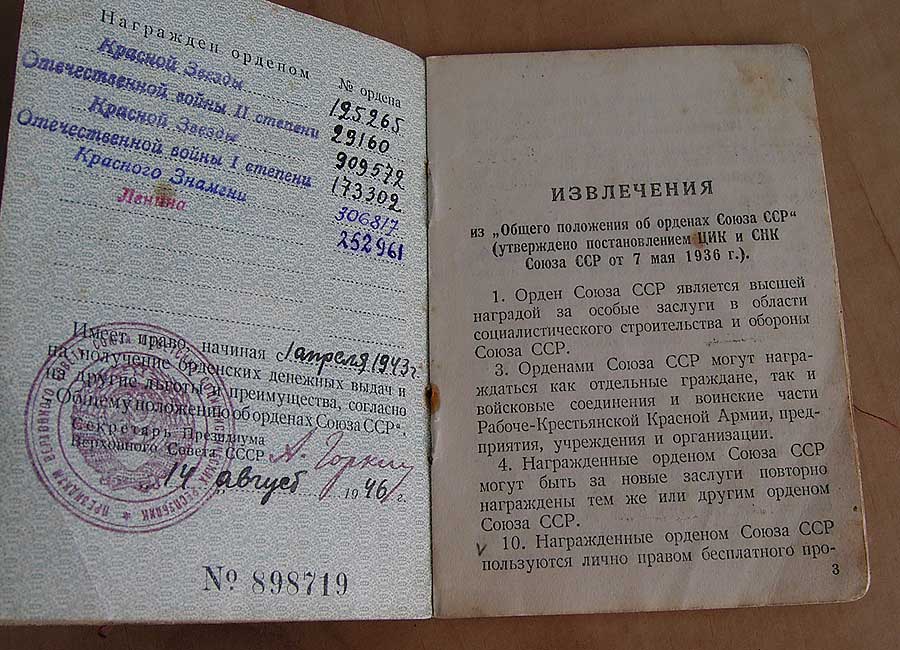 Награжден орденом
№ ордена
Красной Звезды 125265
Отечественной войны II степени 29160
Красной Звезды 909572
Отечественной войны I степени 173302
Красного Знамени 306817
Ленина 252961
Имеет право, начиная с 1 апреля 1943 г.
на получение орденских денежных выдач и
на другие льготы и преимущества, согласно
Общему положению об орденах Союза ССР".
Секретарь Президиума
Верховного Совета СССР А. Горкин
14 август 1946 г.
№ 898719
ИЗВЛЕЧЕНИЯ
из „Общего положения об орденах Союза ССР"
(утверждено постановлением ЦИК и СНК
Союза ССР от 7 мая 1936 г.).
1. Орден Союза ССР является высшей
наградой за особые заслуги в области
социалистического строительства и обороны
Союза ССР.
3. Орденами Союза ССР могут награ-
ждаться как отдельные граждане, так и
войсковые соединения и воинские части
Рабоче-Крестьянской Красной Армии, пред-
приятия, учреждения и организации.
4. Награжденные орденом Союза ССР
могут быть за новые заслуги повторно
награждены тем же или другим орденом
Союза ССР.
10. Награжденные орденом Союза ССР
пользуются лично правом бесплатного про-
3